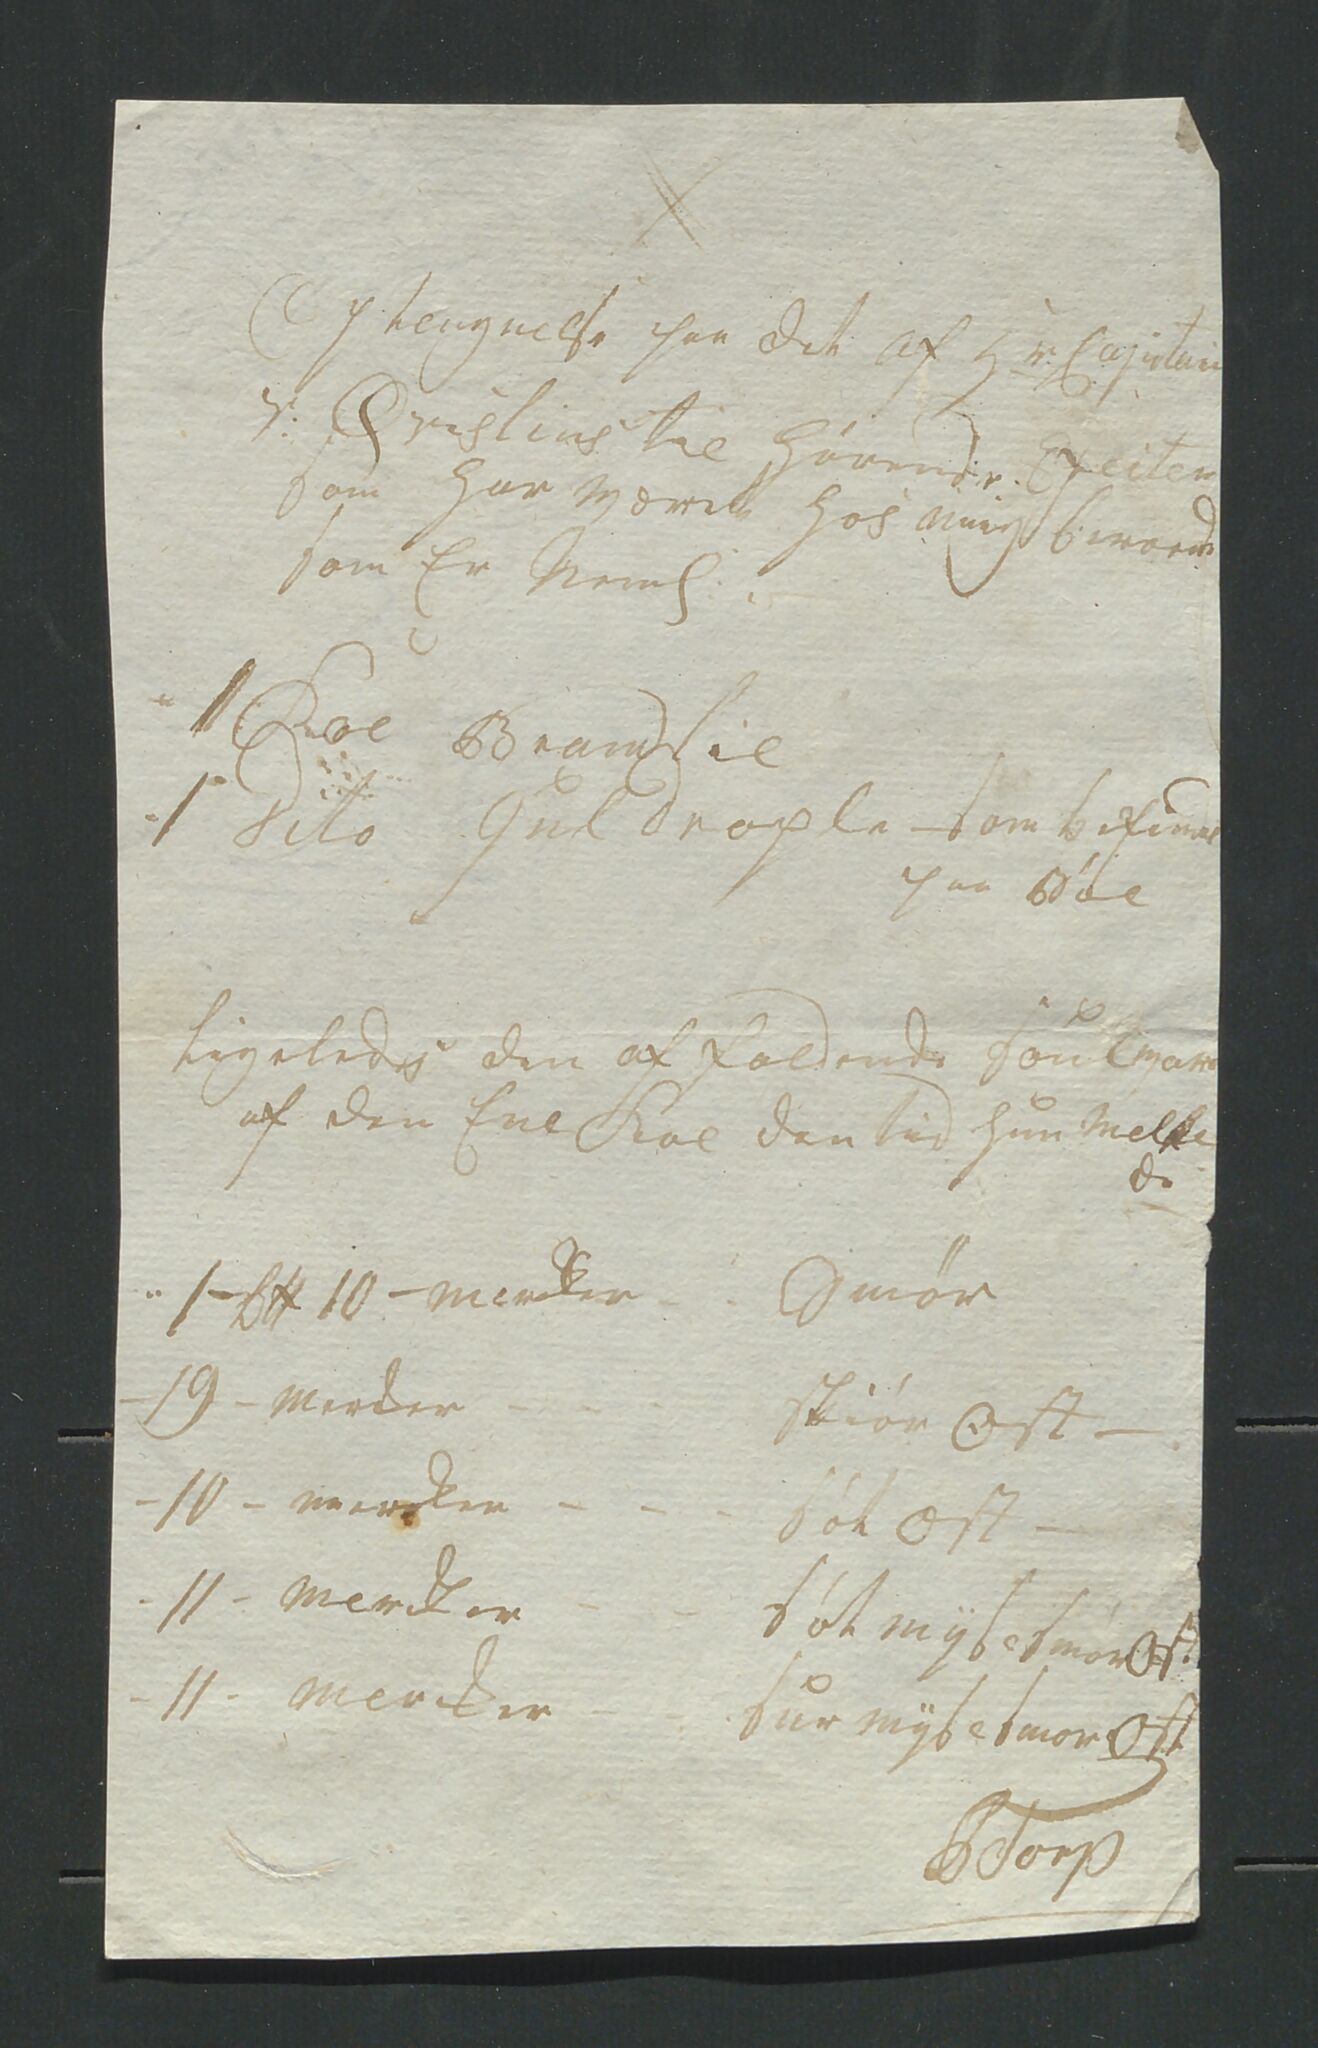 Optengnelse paa det af Hr Capitain
v: Qvislins til hørende Efeiter
som har været hos mig beroende
som Er Neml:
1 Koe Brandlie
1 Dito Guldrople som befindes
paa Bøe
ligeledes den af faldende Sønl
af den Ene Koe den tid hun Melke
de
1 b℔ 10 - mercker - - Smør
- 19 - mercker - - - skiør Ost -
- 10 - mercker - - - Søt Ost -
- 11 - mercker - - Søt mysesmør Ost
- 11 - mercker - - Sur mysesmør Ost
BTorp